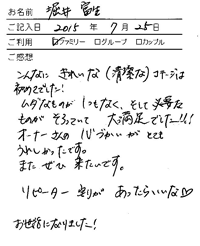 お名前 堀井 富生
ご記入日 2015年 7月 25日
ご利用 ☑ファミリー □グループ □カップル
ご感想
こんなに きれいな (清潔な) コテージは
初めてでした!
ムダなものが 1つもなく、そして 必要な
ものが そろっていて 大満足でした!!!
オーナーさんの 心づかいが とても
うれしかったです。
また ぜひ 来たいです。
リピーター割りが あったらいいな♡
お世話になりました!